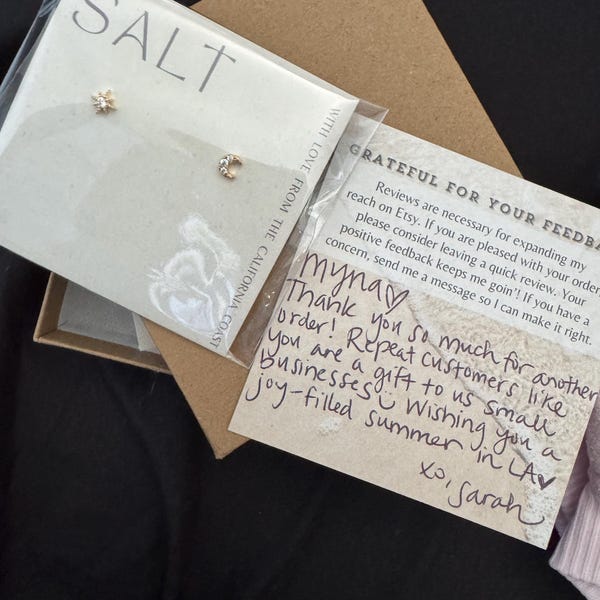 SALT
WITH LOVE FROM THE CALIFORNIA COAST
GRATEFUL FOR YOUR FEEDBA
Reviews are necessary for expanding my
reach on Etsy. If you are pleased with your order,
please consider leaving a quick review. Your
positive feedback keeps me goin'! If you have a
concern, send me a message so I can make it right.
Myna♡
Thank you so much for another
order! Repeat customers like
you are a gift to us small
businesses☺ Wishing you a
joy-filled summer in LA♥
xo, Sarah